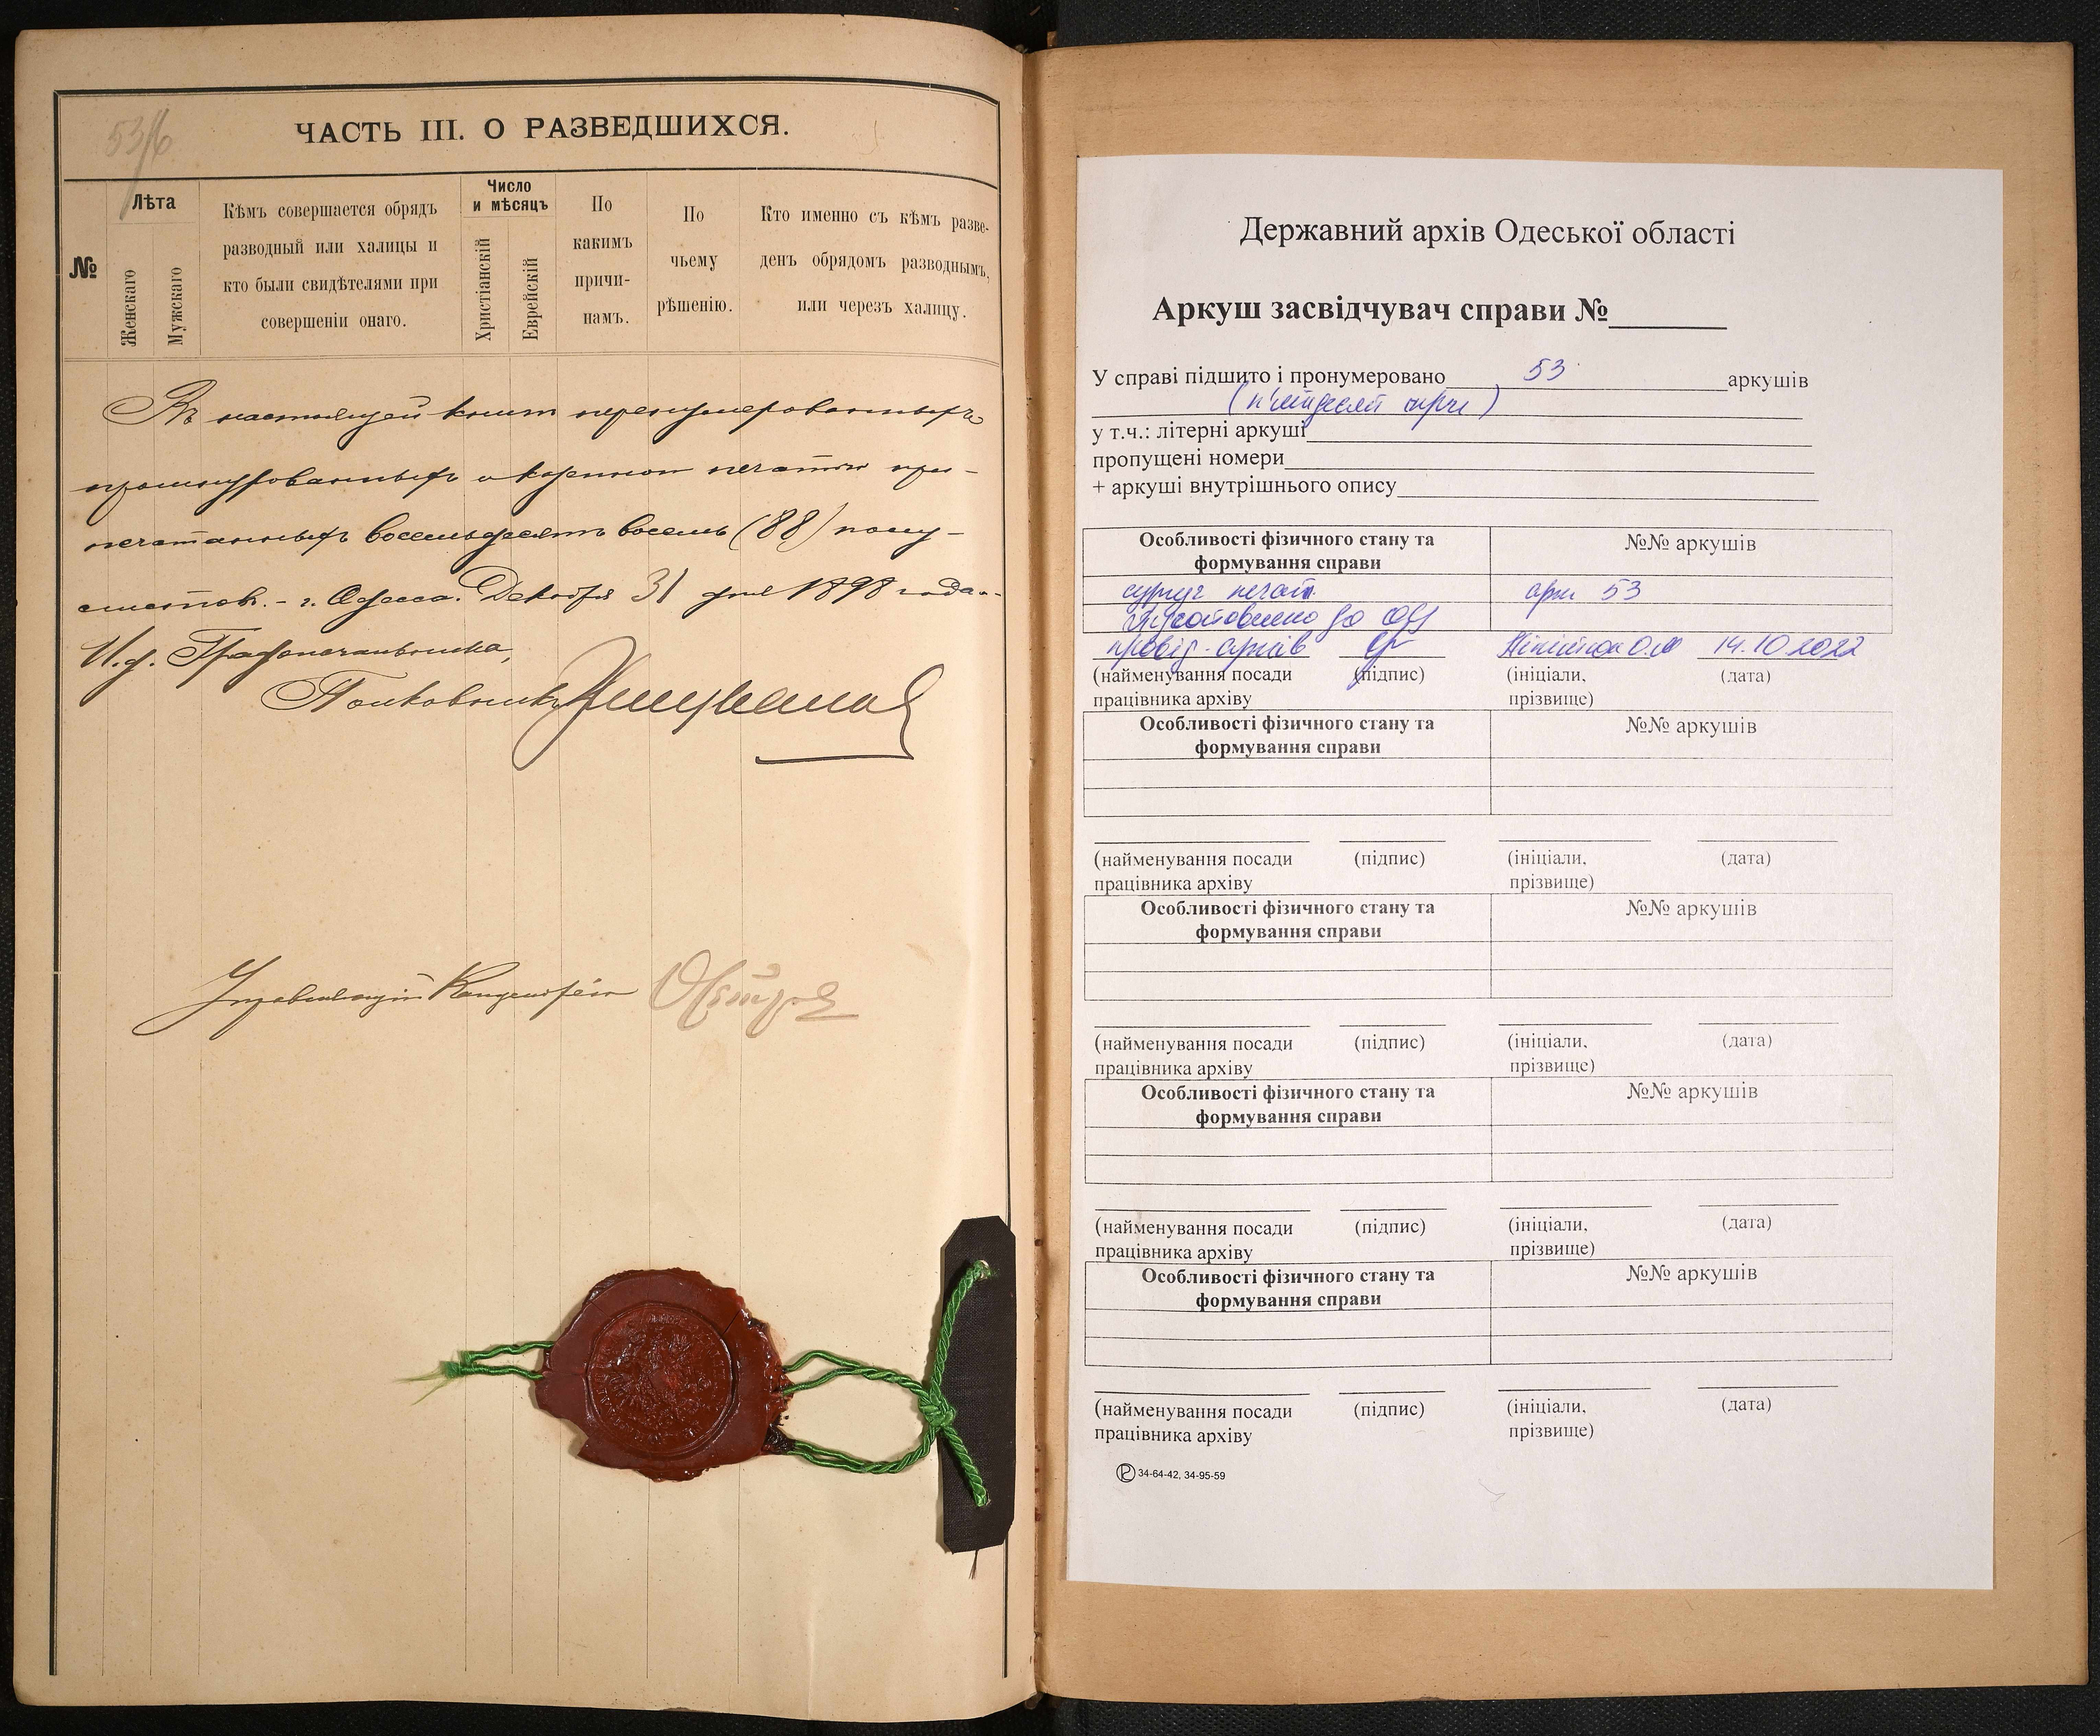 53/6
ЧАСТЬ III. О РАЗВЕДШИХСЯ.
№
Лѣта
Женскаго
Мужскаго
Кѣмъ совершается обрядъ
разводный или халицы и
кто были свидѣтелями при
совершеніи онаго.
Число
и мѣсяцъ
Христіанскій
Еврейскій
По
какимъ
причи-
намъ.
По
чьему
рѣшенію.
Кто именно съ кѣмъ разве-
денъ обрядомъ разводнымъ,
или черезъ халицу.
Въ настоящей книгѣ перенумерованныхъ
прошнурованныхъ и казенною печатью при-
печатанныхъ восемьдесятъ восемь (88) полу-
листовъ. - г. Одесса. Декабря 31 дня 1898 года.-
И. д. Градоначальника,
Полковникъ
Управляющій Канцеляріею
Державний архів Одеської області
Аркуш засвідчувач справи №
У справі підшито і пронумеровано 53 аркушів
(п'ятдесят три)
у т.ч.: літерні аркуші
пропущені номери
+ аркуші внутрішнього опису
Особливості фізичного стану та
формування справи
№№ аркушів
сургуч печат. арк 53
підготовлено до
провід. архів 14.10.2022
(найменування посади
працівника архіву
(підпис)
(ініціали,
прізвище)
(дата)
Особливості фізичного стану та
формування справи
№№ аркушів
(найменування посади
працівника архіву
(підпис)
(ініціали,
прізвище)
(дата)
Особливості фізичного стану та
формування справи
№№ аркушів
(найменування посади
працівника архіву
(підпис)
(ініціали,
прізвище)
(дата)
Особливості фізичного стану та
формування справи
№№ аркушів
(найменування посади
працівника архіву
(підпис)
(ініціали,
прізвище)
(дата)
Особливості фізичного стану та
формування справи
№№ аркушів
(найменування посади
працівника архіву
(підпис)
(ініціали,
прізвище)
(дата)
34-64-42, 34-95-59